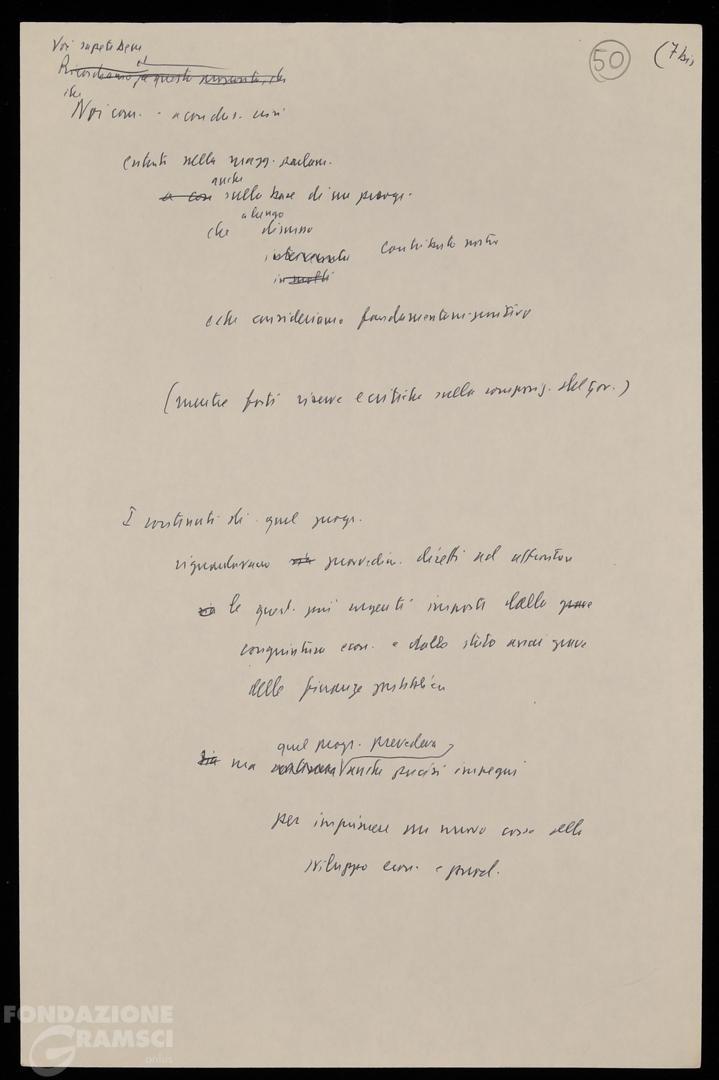 Voi sapete bene
50
(7 bis
Ricordiamo a questo momento, che
che
Noi com.
entrati nella magg. parlam.
anche
e così sulla base di un progr.
a lungo
che discusso
contributo nostro
in molti
e che consideriamo fondamentalm. positivo
(mentre forti riserve e critiche sulla composiz. del gov.)
I contenuti di quel progr.
riguardavano sia provvedim. diretti ad affrontare
sia le quest. più urgenti imposte dalla grave
congiuntura econ. e dallo stato assai grave
delle finanze pubbliche
quel progr. prevedeva
sia ma conteneva anche precisi impegni
per imprimere un nuovo corso allo
sviluppo econ. e
FONDAZIONE
GRAMSCI
onlus